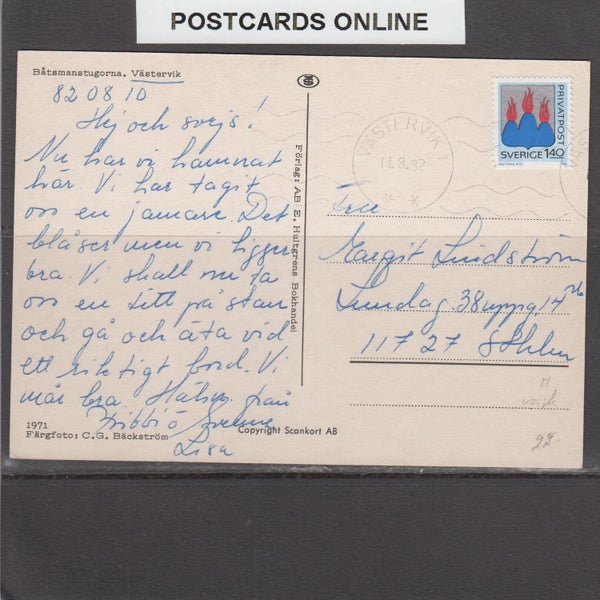 POSTCARDS ONLINE
Båtsmanstugorna. Västervik
82 08 10
Hej och svejs!
Nu har vi hamnat
här. Vi har tagit
oss en jamare. Det
blåser men vi ligger
bra. Vi skall nu ta
oss en titt på stan
och gå och äta vid
ett riktigt bord. Vi
mår bra. från
Lisa
1971
Färgfoto: C.G. Bäckström
Förlag: AB E. Hultgrens Bokhandel
Copyright Scankort AB
VÄSTERVIK 1
11.8.82
PRIVATPOST
SVERIGE 140
Fru
Margit Lindström
Lundag. 38 uppg. 14
117 27 Sthlm
22:-